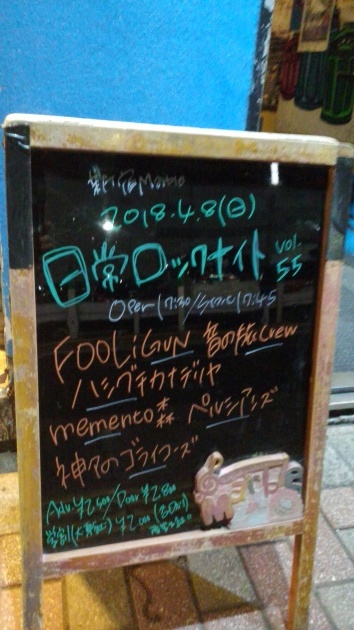 新宿Marble
2018.4.8(日)
日常ロックナイト vol.55
Open 17:30/ 17:45
FOOLiGUN 音の旅crew
ハシグチカナデリヤ
memento森 ペルシアンズ
神々のゴライコーズ
Adv ¥2400/Door ¥2800
学割 ¥2000
Marble